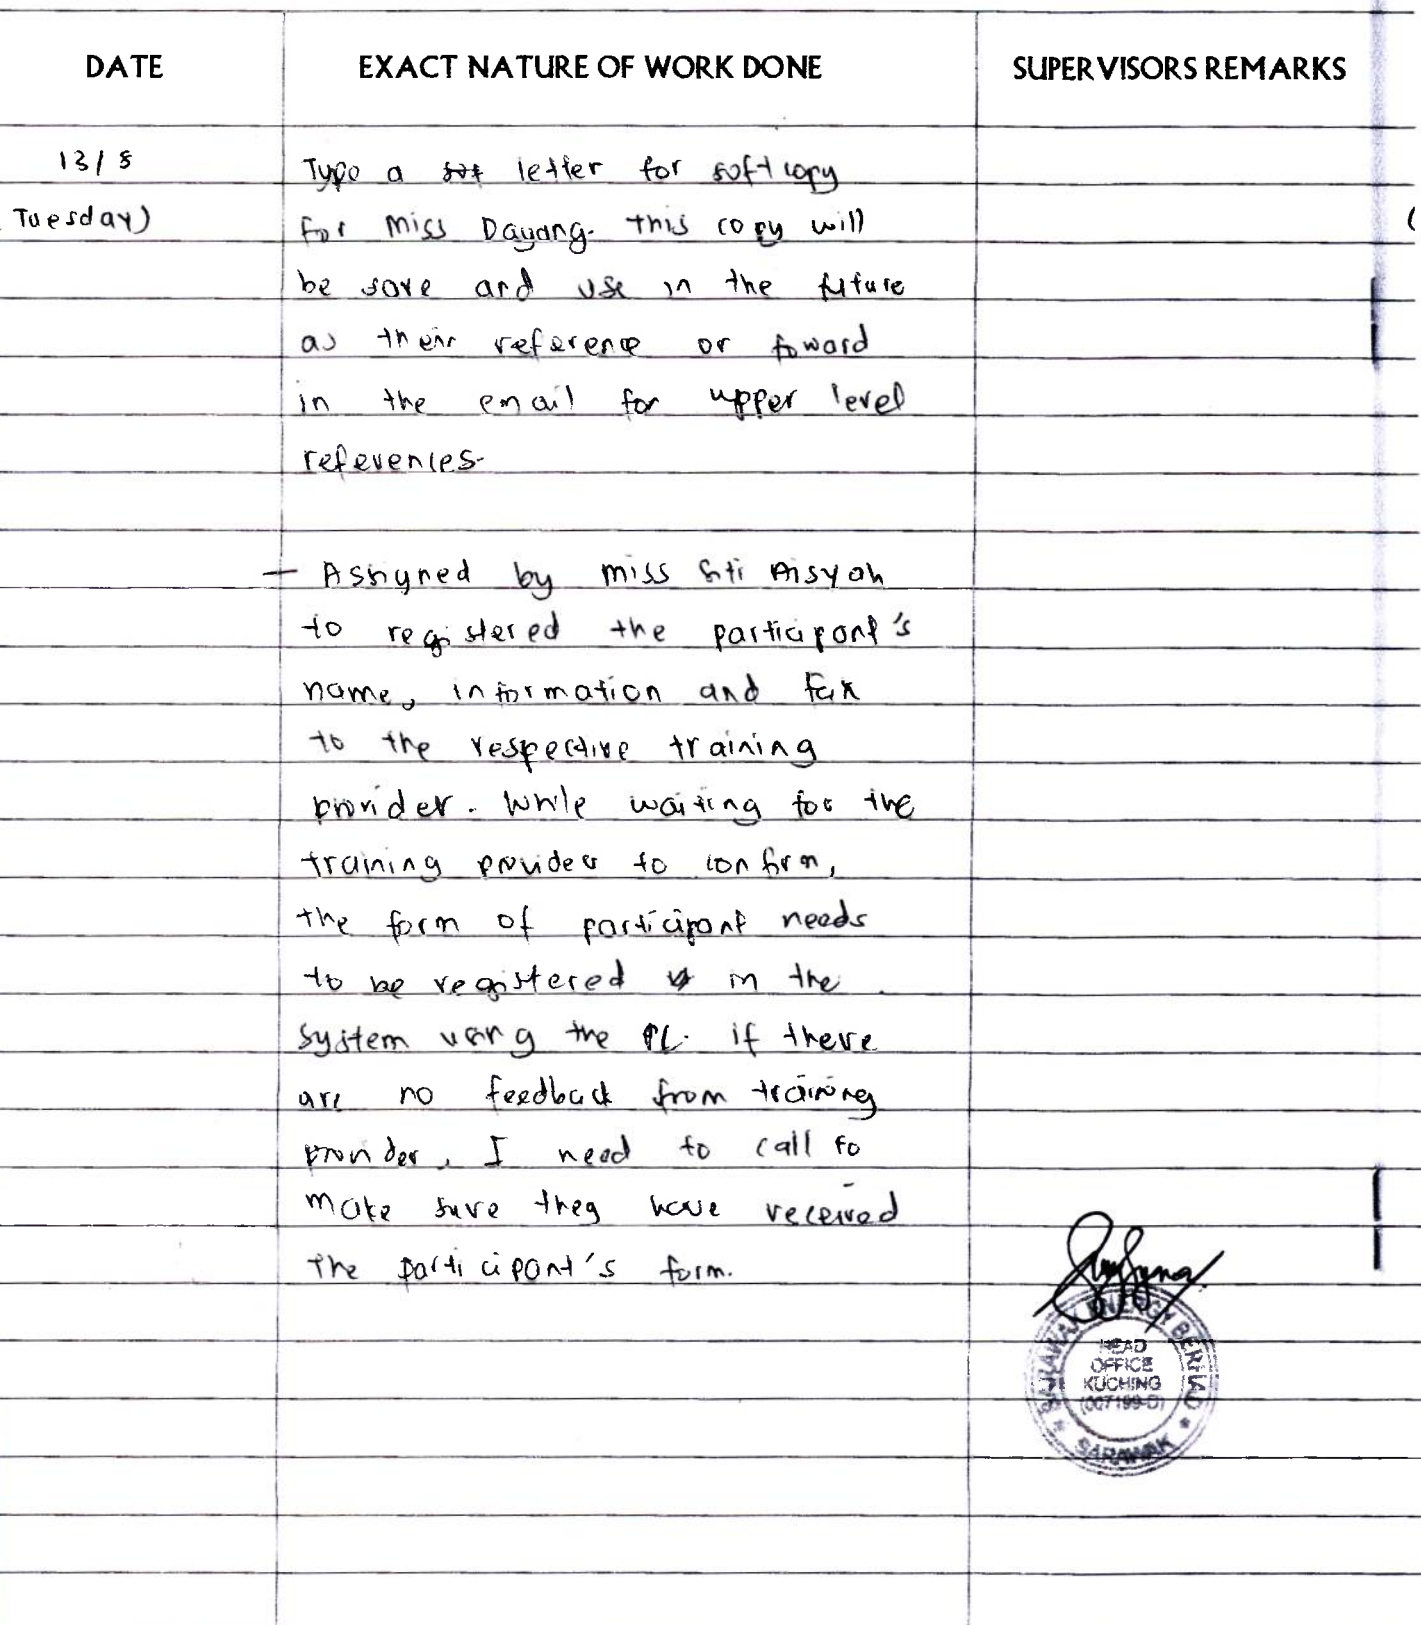 DATE EXACT NATURE OF WORK DONE SUPERVISORS REMARKS
13/8 Type a letter for softcopy
Tuesday) for Miss Dayang. this copy will
be save and use in the future
as their reference or foward
in the email for upper level
references.
- Assigned by miss Siti Aisyah
to registered the participant's
name, information and fax
to the respective training
provider. While waiting for the
training provider to confirm,
the form of participant needs
to be registered in the
system using the PC. if there
are no feedback from training
provider, I need to call to
make sure they have received
the participant's form.
SARAWAK ENERGY BERHAD
HEAD
OFFICE
KUCHING
(007199-D)
SARAWAK